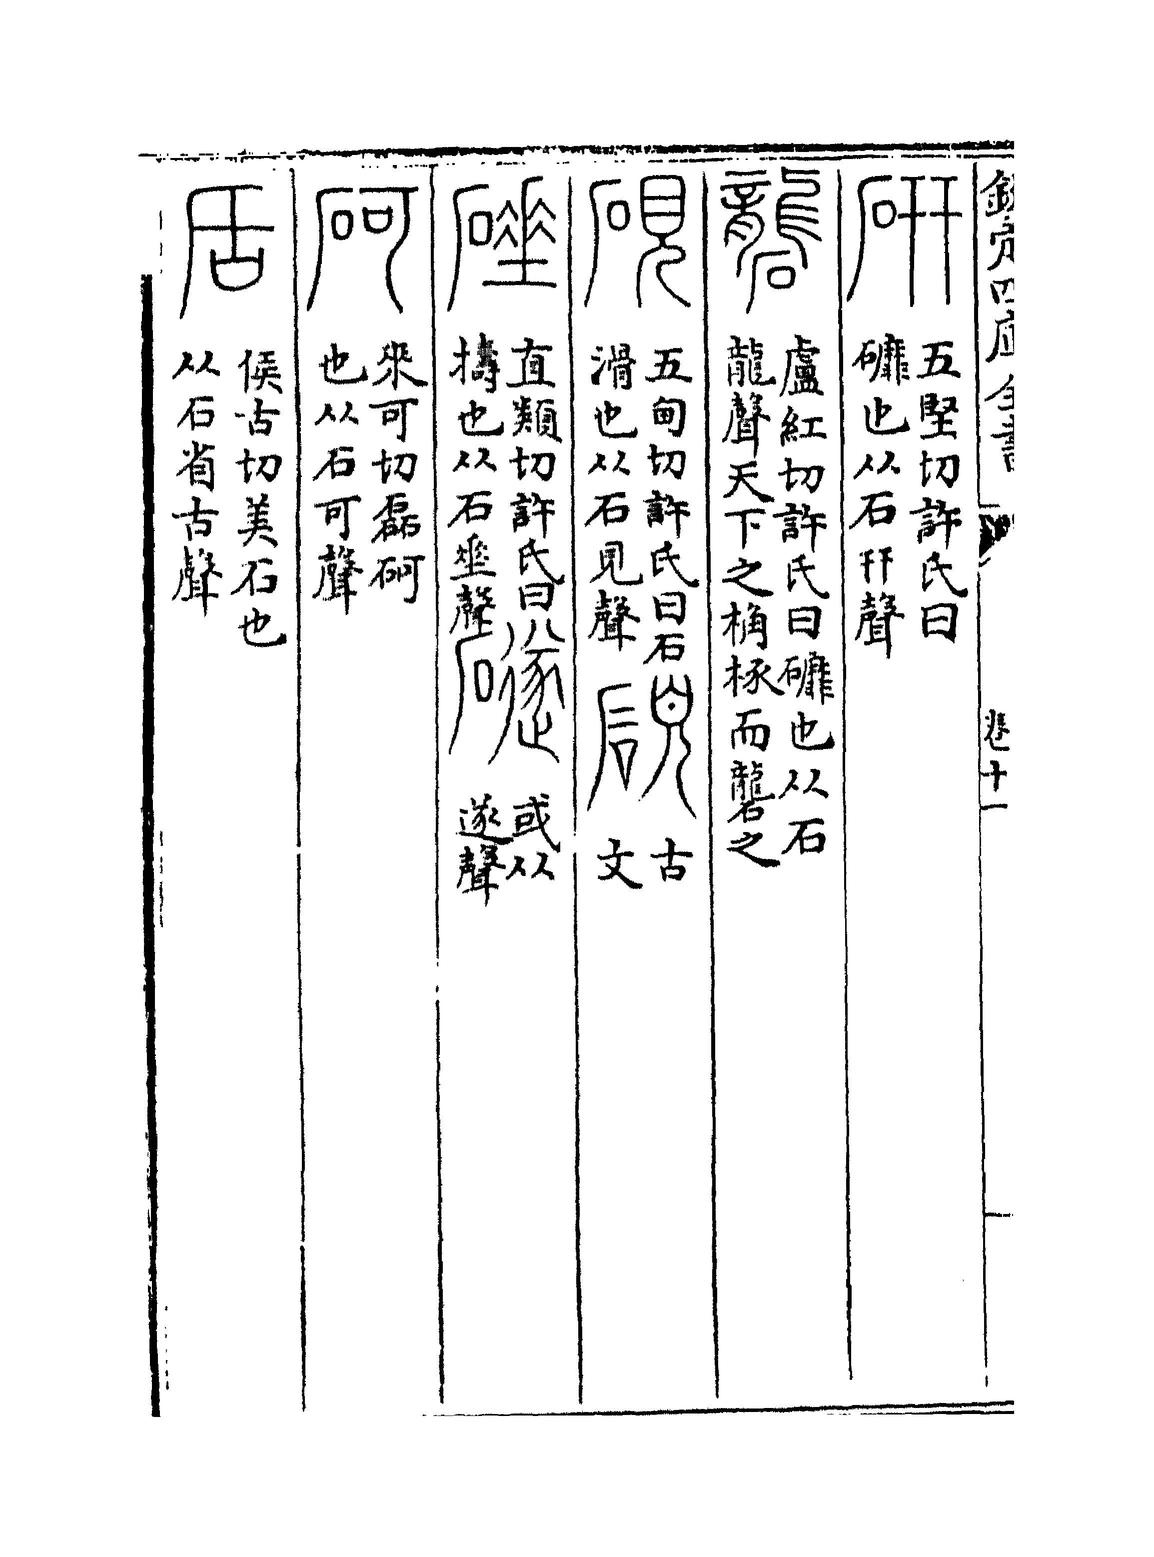 欽定四庫全書 卷十一
研
五堅切許氏曰
䃺也从石幵聲
礱
盧紅切許氏曰䃺也从石
龍聲天下之桷椓而礱之
硯
五甸切許氏曰石
滑也从石見聲
古
文
硾
直類切許氏曰
擣也从石垂聲
或从
遂聲
砢
來可切磊砢
也从石可聲
㕆
侯古切美石也
从石省古聲